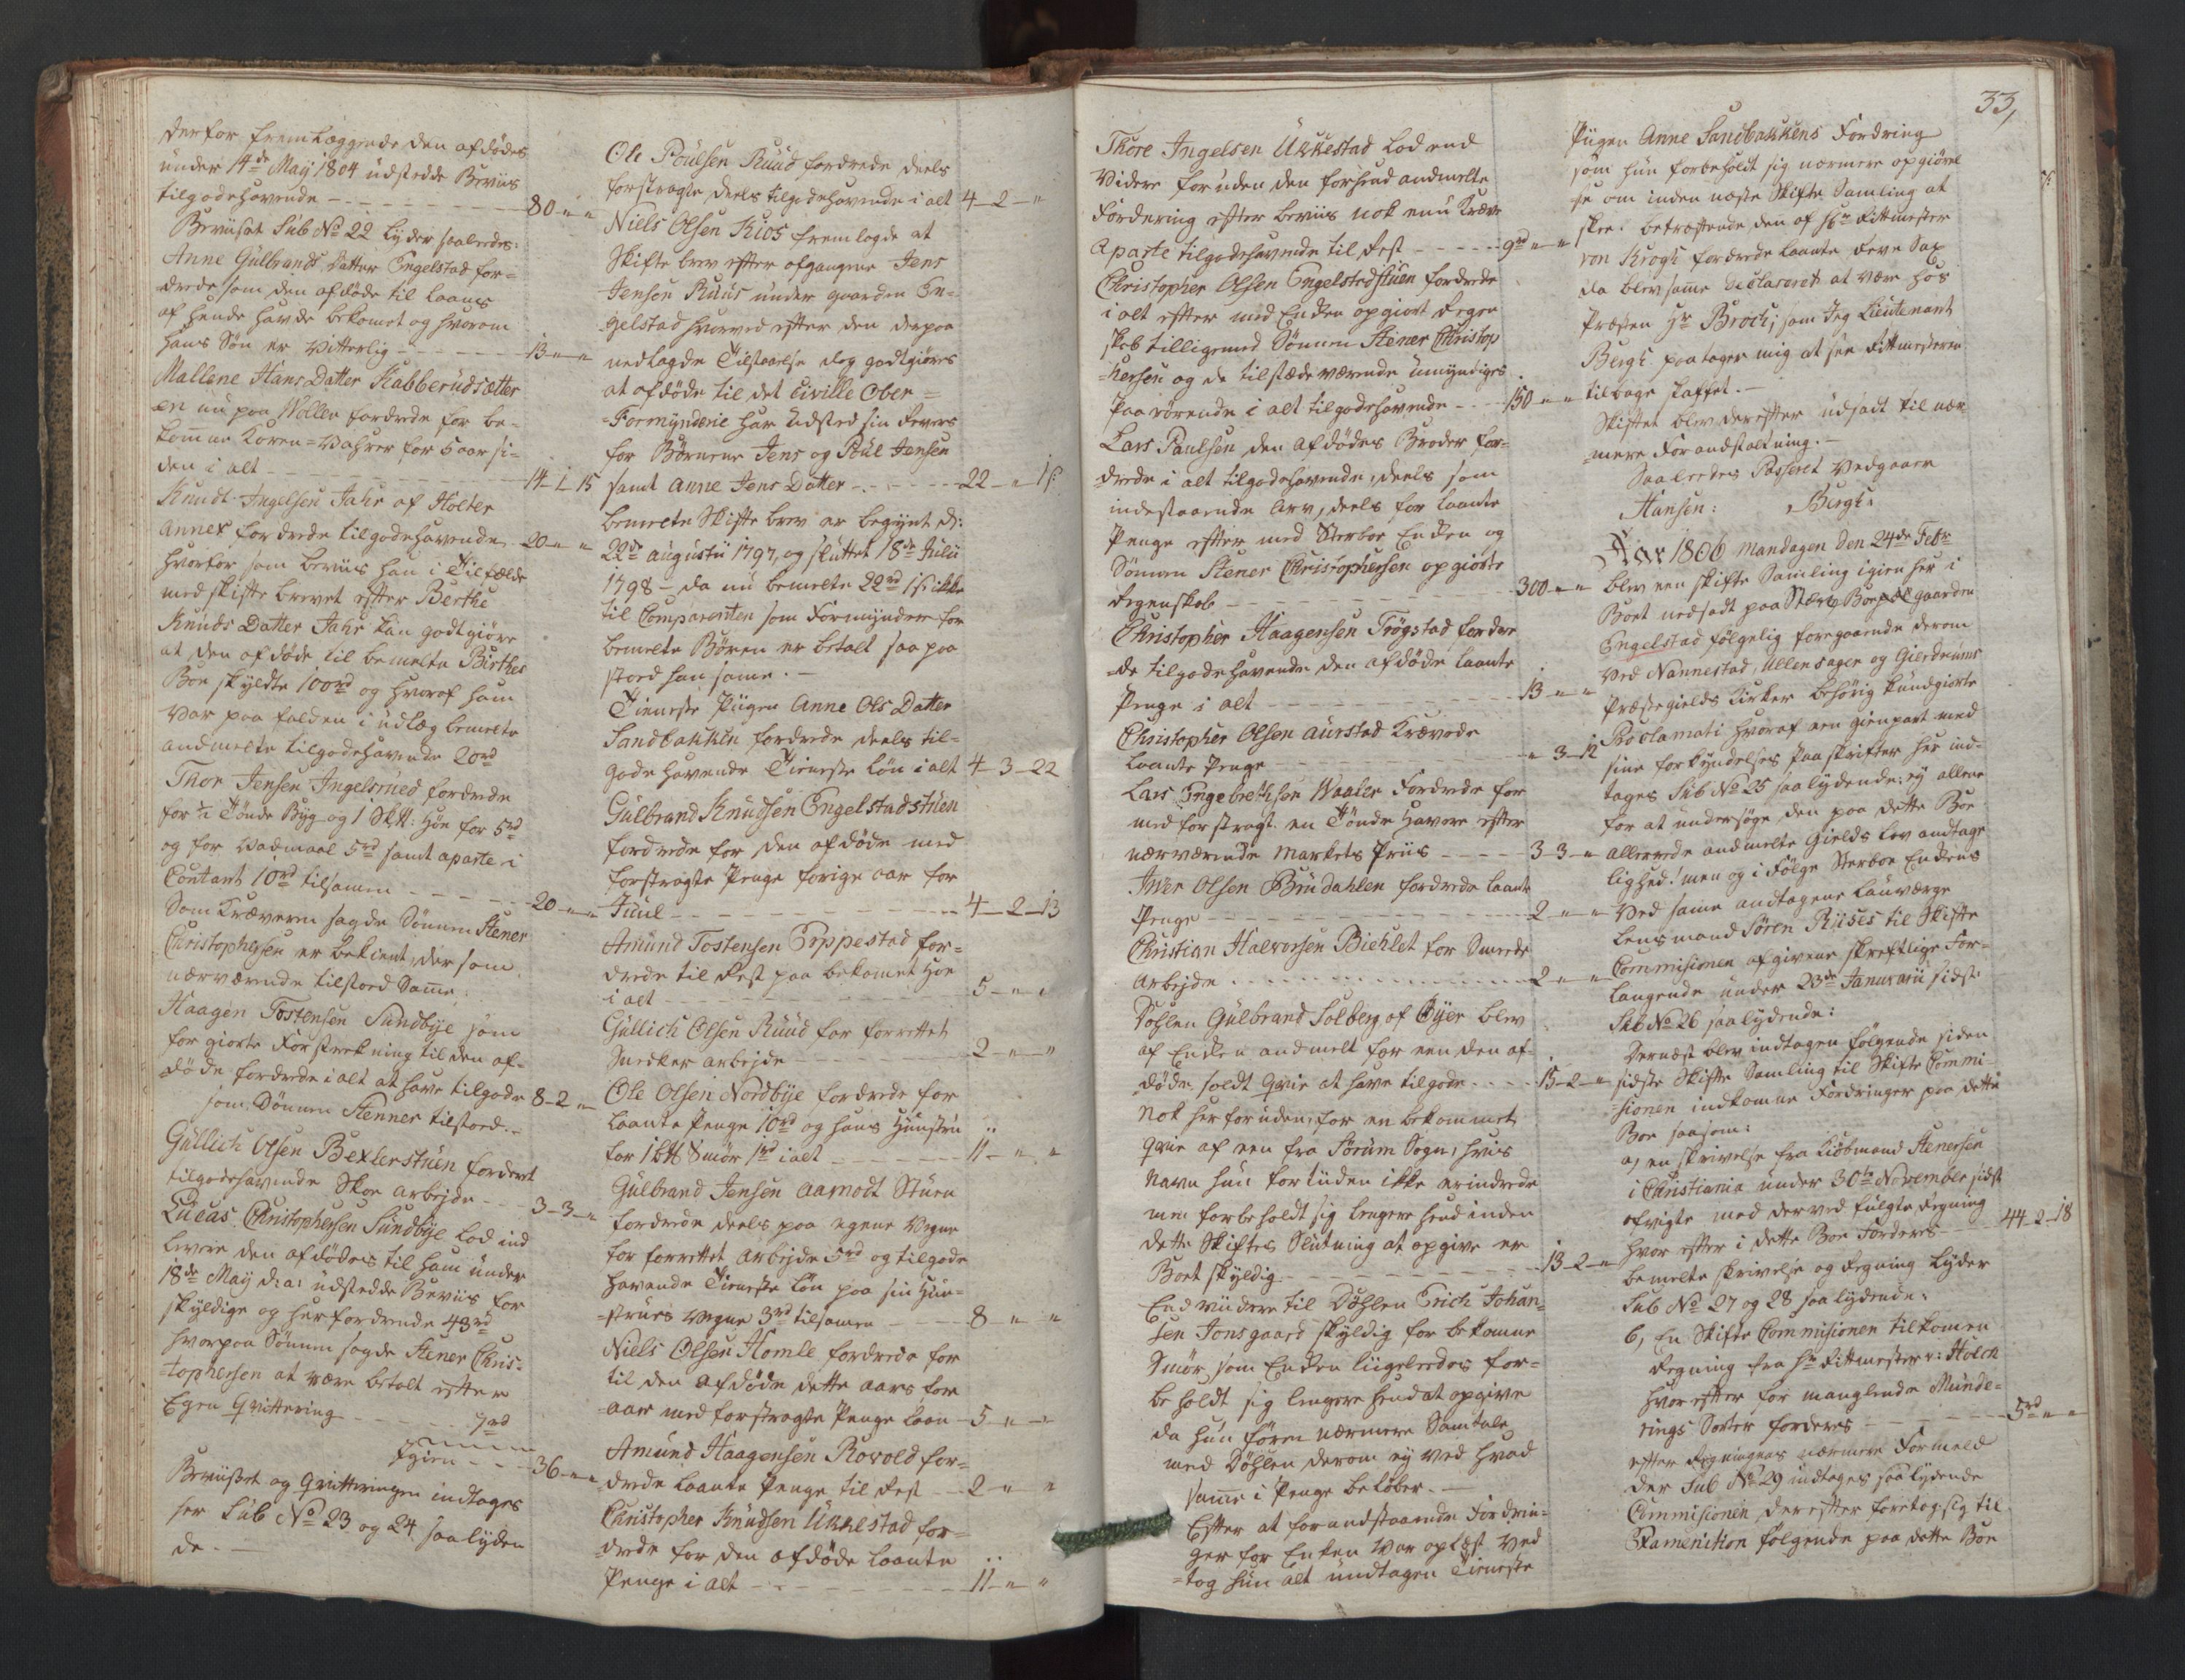 derfor fremlæggende den afdødes
under 14de May 1804 udstedde Beviis
tilgodehavende - - - 80 - " - "
Beviiset Sub No 22 lyder saaledes:
Anne Gulbrands Datter Engelstad for=
drede som den afdøde til laans
af hende havde bekomet og hvorom
hans Søn er vitterlig - - - 13 - " - "
Mallene Hans Datter Kabberudsætter
en nu paa Wollen fordrede for be=
komne Koren=Vahrer for 5 aar si=
den i alt - - - 14 - 1 - 15
Knudt Ingelsen Jahr af Holter
Annex fordrede tilgodehavende 20 - " - "
hvorfor som beviis han i Tilfælde
med skifte brevet efter Berthe
Knuds Datter Jahr kan godtgiøre
at den afdøde til bemelte Birthes
Boe skyldte 100rd og hvoraf ham
var paa falden i udlæg bemelte
andmelte tilgodehavende 20rd
Thor Jensen Ingelsrued fordrede
for ½ Tønde Byg og 1 Sk℔: Høe for 5rd
og for Vadmaal 5rd samt aparte i
Contant 10rd tilsamen - - - 20 - " - "
Som Kræveren sagde Sønnen Stener
Christophersen er bekient, der som
nærværende tilstoed Same.
Haagen Tostensen Sundbye som
for giorte Forstrekning til den af=
døde fordrede i alt at have tilgode 8 - 2 - "
som Sønnen Stenner tilstoed. -
Gullich Olsen Bexlerstuen fordert
tilgodehavende Skoe arbejde - - 3 - 3 - "
Lucas Christophersen Sundbye lod ind
levere den afdødes til ham under
18de May d: a: udstedde Beviis for
skyldige og her fordrende 43rd
hvorpaa Sønnen sagde Stener Chris=
=tophersen at være betalt efter
Egen Qvittering - - - 7rd
Igien - - - 36 - " - "
Beviiset og Qvitteringen indtages
her Sub No 23 og 24 saa lyden
de. -
Ole Poulsen Ruud fordrede deels
forstragte deels tilgodehavende i alt 4 - 2 - "
Niels Olsen Kios fremlagde at
Skifte brev efter afgangne Jens
Jensen Ruus under gaarden En=
gelstad hvorved efter den derpaa
nedlagde Tilstaaelse dog godtgiøres
at afdøde til det Civille Ober=
=Formynderie har udsted sin Revers
for Børnene Jens og Poul Jensen
samt Anne Jens Datter - - - 22 - " 1 ß
bemelte Skifte brev er begynt d:
22de Augusti 1797, og sluttet 18de Julii
1798 - da nu bemelte 22rd 1ß ikke
til Comparenten som Formynder for
bemelte Børen er betalt saa paa
stoed han same. -
Tieneste Piigen Anne Ols Datter
Sandbakken fordrede deels til=
gode havende Tieneste løn i alt 4 - 3 - 22
Gulbrand Knudsen Engelstadstuen
fordrede for den afdøde med
forstragte Penge forige aar for
Juul - - - 4 - 2 - 13
Amund Tostensen Eppestad for=
drede til Rest paa bekomet Høe
i alt - - - 5 - " - "
Gullich Olsen Ruud for forrettet
Snedker arbejde - - - 2 - " - "
Ole Olsen Nordbye fordrede for
laante Penge 10rd og hans Hunstru
for 1 b℔ Smør 1rd i alt - - - 11 - " - "
Gulbrand Jensen Aamodt Stuen
fordrede deels paa egene Vegne
for forrettet arbejde 5rd og tilgode
havende Tieneste løn paa sin Hun=
=strues Vegne 3rd tilsamen - - - 8 - " - "
Niels Olsen Homle fordrede for
til den afdøde dette aars for
aar med forstragte Penge laan - 5 - " - "
Amund Haagensen Rovold for=
drede laante Penge til Rest - - 2 - " - "
Christopher Knudsen Ukkestad for=
drede for den afdøde laante
Penge i alt - - - 11 - " - "
33,
Thore Ingelsen Ukkestad lod end
videre foruden den forhend andmelte
Fordering efter beviis nok enu Kræve
aparte tilgodehavende til Rest - - - 9rd " - "
Christopher Olsen Engelstedstuen fordrede
i alt efter med Enken opgiort Regen
skab tilligemed Sønnen Stener Christop
=hersen og de tilstæde værende umyndiges
paarørende i alt tilgodehavende - - 150 - " - "
Lars Paulsen den afdødes Broder for=
drede i alt tilgodehavende, deels som
indestaaende Arv, deels for laante
Penge efter med Sterboe Enken og
Sønnen Stener Christophersen opgiorte
Regenskab - - - 300 - " - "
Christopher Haagensen Trøgstad fordre
de tilgodehavende den afdøde laante
Penge i alt - - - 13 - " - "
Christopher Olsen Aurstad Krævede
laante Penge - - - " 3 - 12
Lars Engebrethsen Waaler Fordrede for
med forstragt en Tønde Havre efter
nærværende Markets Priis - - - 3 - 3 - "
Iver Olsen Brudahlen fordrede laante
Penge - - - 2 - " - "
Christian Halvorsen Biehlet for Smede
Arbejde - - - 2 - " - "
Døhlen Gulbrand Solberg af Øyer blev
af Enken andmelt for een den af=
døde soldt Qvie at have tilgode - - - 15 - 2 - "
Nok her foruden, for en bekommet
Qvie af een fra Sørum Sogn, hvis
Navn hun fortiiden ikke erindrede
men forbeholdt sig lengere hend inden
dette Skiftes Slutning at opgive er
Boet skyldig - - - 13 - 2 - "
End viidere til Døhlen Erich Johan=
sen Jonsgaard skyldig for bekomne
Smør, som Enken liigeledes for=
be holdt sig lengere hend at opgive
da hun føren nærmere Samtale
med Døhlen derom ej ved hvad
same i Penge beløber. -
Efter at forandstaaende Fordrin=
ger for Enken var oplæst ved
=tog hun alt undtagen Tieneste
Piigen Anne Sandbakkens Fordring
som hun forbeholdt sig nærmere opgiørel
se om inden neste Skifte Samling at
skee. betreffende den af Hr Rittmester
von Krogh fordrede laante
da blev same declareret at være hos
Præsten Hr Broch; som Jeg Lieutenant
Bergh paatager mig at see Rittmesteren
tilbage skaffet. -
Skiftet blev derefter udsadt til nær
=mere Forandstaltning. -
Saaledes Passeret Vedgaaer
Hansen: Bergh:
Aar 1806 Mandagen den 24de Febr
blev een skifte Samling igien her i
Boet nedsadt paa Stærboe gaarden
Engelstad følgelig foregaaende derom
ved Nannestad, Ullensager og Gierdrums
Præstegields Kirker behørig kundgiorte
Proclamati hvoraf een gienpart med
sine forkyndelses Paaskrifter her ind=
tages Sub No 25 saa lydende: ej allene
for at undersøge den paa dette Boe
allerede andmelte Gields lov andtage
lighed! men og i Følge Sterboe Enkens
ved same andtagene Lauværge
Lensmand Søren Riises til Skifte
Commisionen afgivne skreftlige For=
langende under 23de Januarii sidst
Sub No 26 saalydende:
Dernæst blev indtagen følgende siden
sidste Skifte Samling til Skifte Commi=
=sionen indkomne Fordringer paa dette
Boe saasom:
a, en skrivelse fra Kiøbmand Stenersen
i Christiania under 30te November sidst
afvigte med derved fulgte Regning
hvor efter i dette Boe Forderes - 44 - 2 - 18
bemelte skrivelse og Regning lyder
Sub No 27 og 28 saa lydende:
b, En Skifte Commisionen tilkomen
Regning fra Hr Rittmester v: Holch
hvorefter for manglende Munde=
rings Sorter forderes - - - 5rd " - "
efter Regningens nærmere Formeld
der Sub No 29 indtages saa lydende
Commisionen derefter foretog sig til
Examenition følgende paa dette Boe